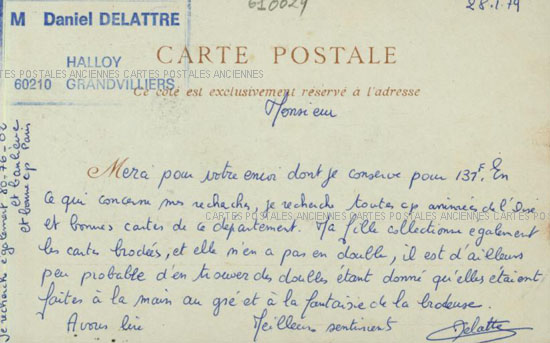 610029
28.1.79
M Daniel DELATTRE
HALLOY
60210 GRANDVILLIERS
CARTE POSTALE
CARTES POSTALES ANCIENNES CARTES POSTALES ANCIENNES
Ce côté est exclusivement réservé à l'adresse
Monsieur
Merci pour votre envoi dont je conserve pour 137F. En
ce qui concerne mes recherches, je recherche toutes cp animées de l'Oise
CARTES POSTALES ANCIENNES CARTES POSTALES
et bonnes cartes de ce département. Ma fille collectionne egalement
les cartes brodées, et elle n'en a pas en double, il est d'ailleurs
peu probable d'en trouver des doubles étant donné qu'elles étaient
faites à la main au gré et à la fantaisie de la brodeuse.
A vous lire Meilleurs sentiments Delattre
je recherche egalement 80-76-02
et banlieue
et bonne cp Paris